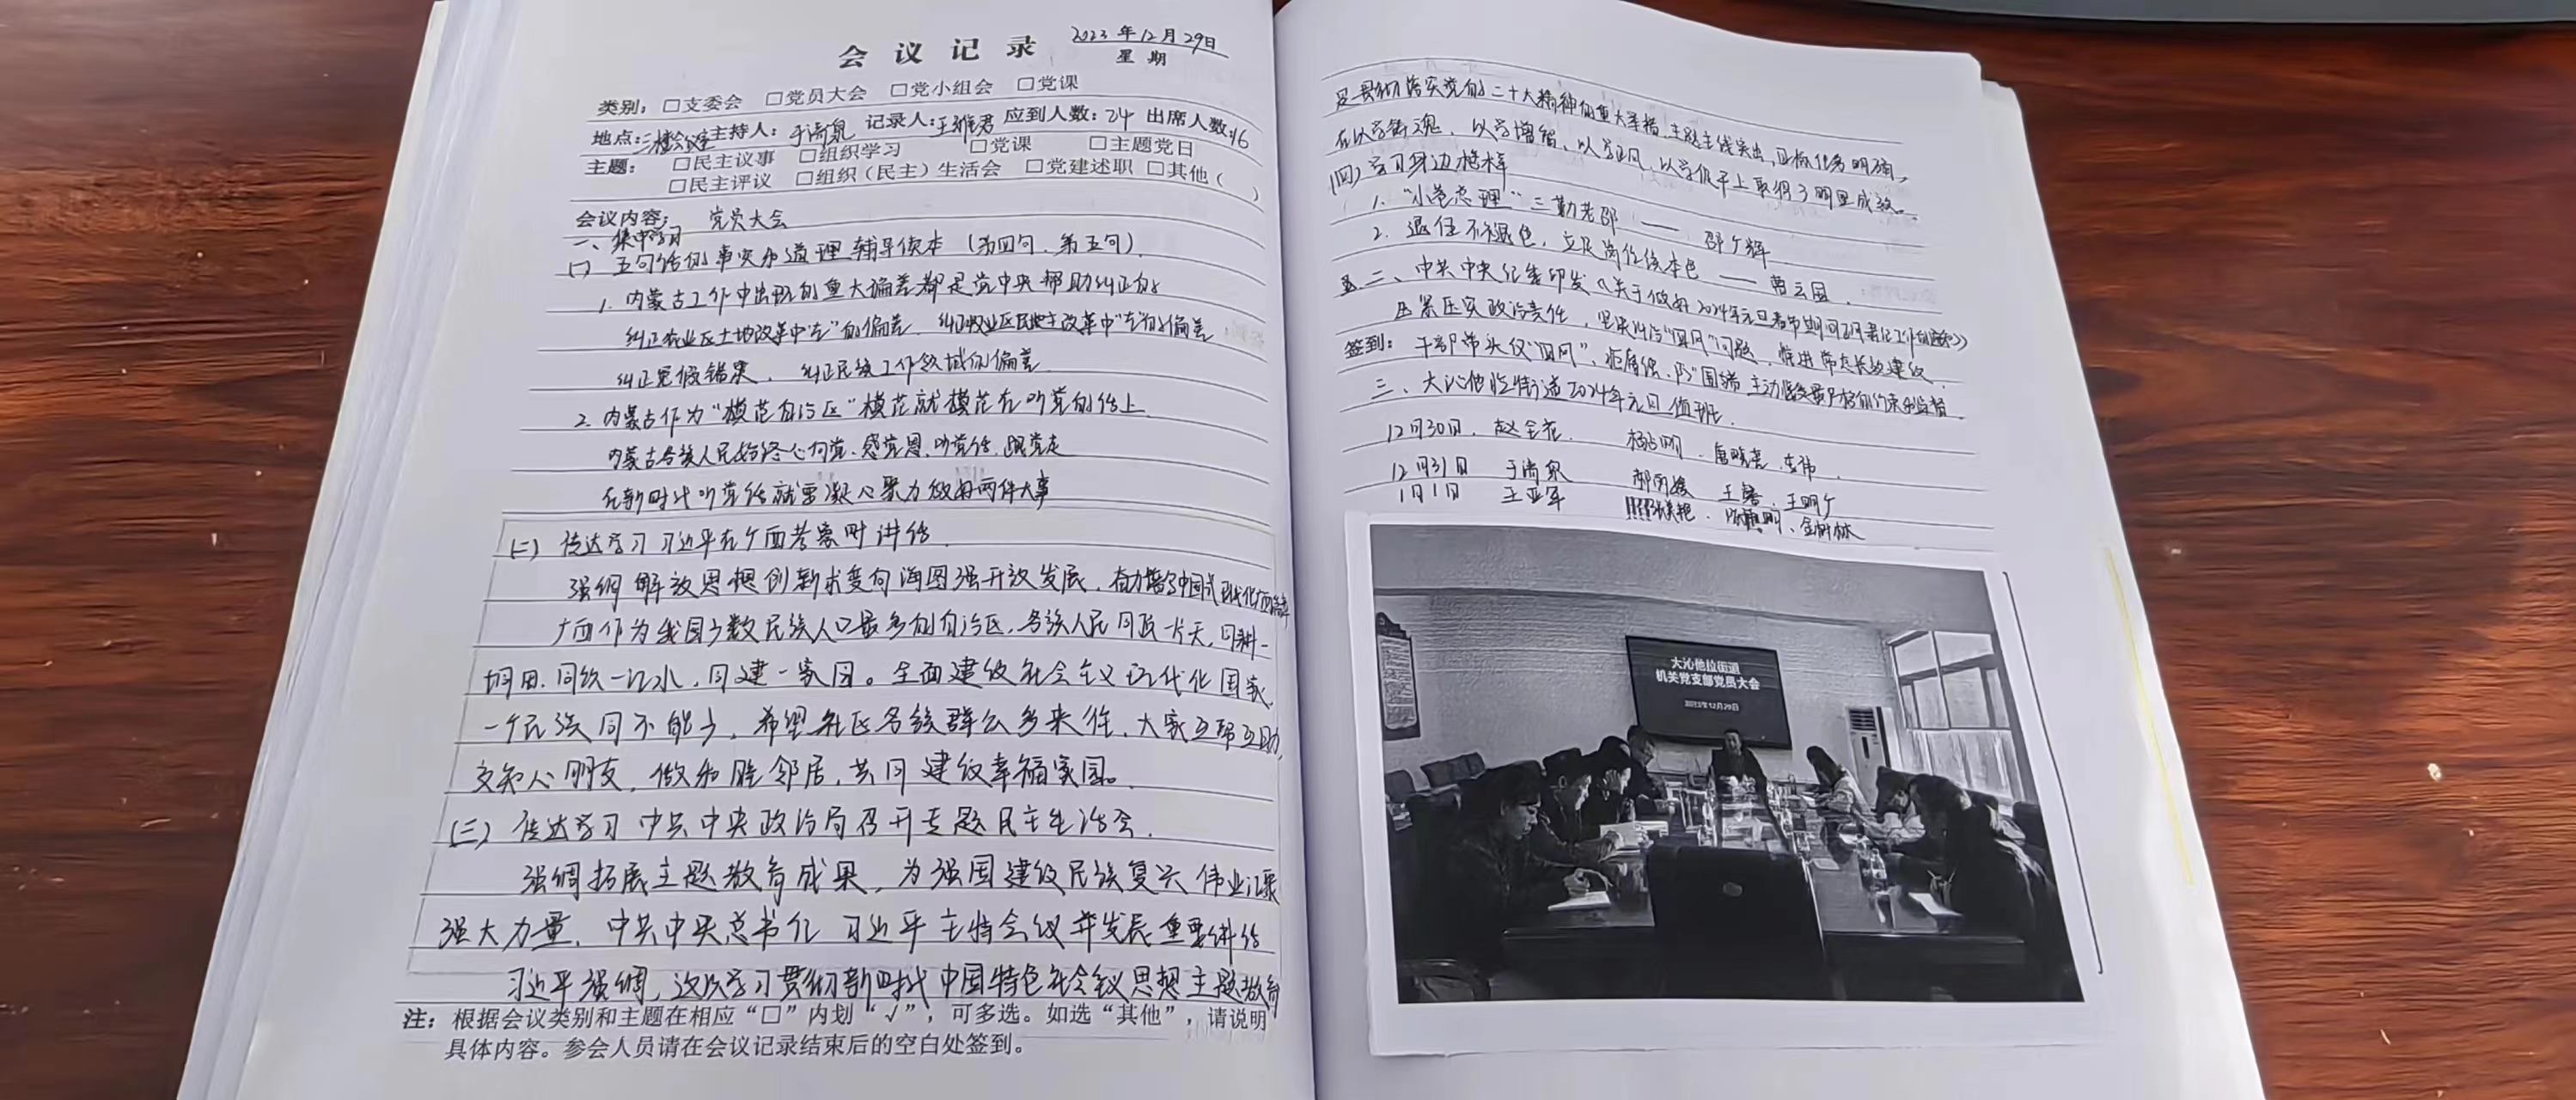 会议记录
2023年12月29日
星期
类别：□支委会 □党员大会 □党小组会 □党课
地点：三楼会议室 主持人：于海泉 记录人：王雅君 应到人数：24 出席人数：16
主题：□民主议事 □组织学习 □党课 □主题党日
□民主评议 □组织（民主）生活会 □党建述职 □其他（ ）
会议内容： 党员大会
一、集中学习
(一) 五句话的事实和道理辅导读本（第四句、第五句）
1. 内蒙古工作中出现的重大偏差都是党中央帮助纠正的
纠正农业区土地改革中"左"的偏差、纠正牧业区民主改革中"左"的偏差
纠正冤假错案、纠正民族工作领域的偏差
2. 内蒙古作为"模范自治区"模范就模范在听党的话上
内蒙古各族人民始终心向党、感党恩、听党话、跟党走
在新时代听党话就要凝心聚力做好两件大事
(二) 传达学习习近平在广西考察时讲话.
强调解放思想创新求变向海图强开放发展，奋力谱写中国式现代化广西篇章
广西作为我国少数民族人口最多的自治区，各族人民同顶一片天，同耕一
垌田、同饮一江水，同建一家园。全面建设社会主义现代化国家，
一个民族同不能少，希望社区各族群众多来往，大家互帮互助，
交知心朋友，做和睦邻居，共同建设幸福家园。
(三) 传达学习中共中央政治局召开专题民主生活会.
强调拓展主题教育成果，为强国建设民族复兴伟业汇聚
强大力量，中共中央总书记习近平主持会议并发表重要讲话
习近平强调，这次学习贯彻新时代中国特色社会主义思想主题教育
注：根据会议类别和主题在相应"□"内划"√"，可多选。如选"其他"，请说明
具体内容。参会人员请在会议记录结束后的空白处签到。
是贯彻落实党的二十大精神的重大举措，主题主线突出，目标任务明确，
在以学铸魂、以学增智、以学正风、以学促干上取得了明显成效。
(四) 学习身边榜样
1. "小巷总理"三勤老邵 —— 邵广辉
2. 退伍不褪色，立足岗位倓本色 —— 曹云国.
二、中共中央纪委印发《关于做好2024年元旦春节期间正风肃纪工作的通知》
压紧压实政治责任，坚决纠治"四风"问题，推进常态长效建设.
签到： 干部带头仅"四风"，拒腐蚀、防"围猎"主动接受最严格的约束和监督
三、大沁他拉街道2024年元旦值班.
12月30日. 赵全花. 杨明. 唐晓亮.李伟.
12月31日 于海泉 郝丽媛 王馨. 王明广
1月1日 王亚军 张艳. 明、金树林
大沁他拉街道
机关党支部党员大会
2023年12月29日